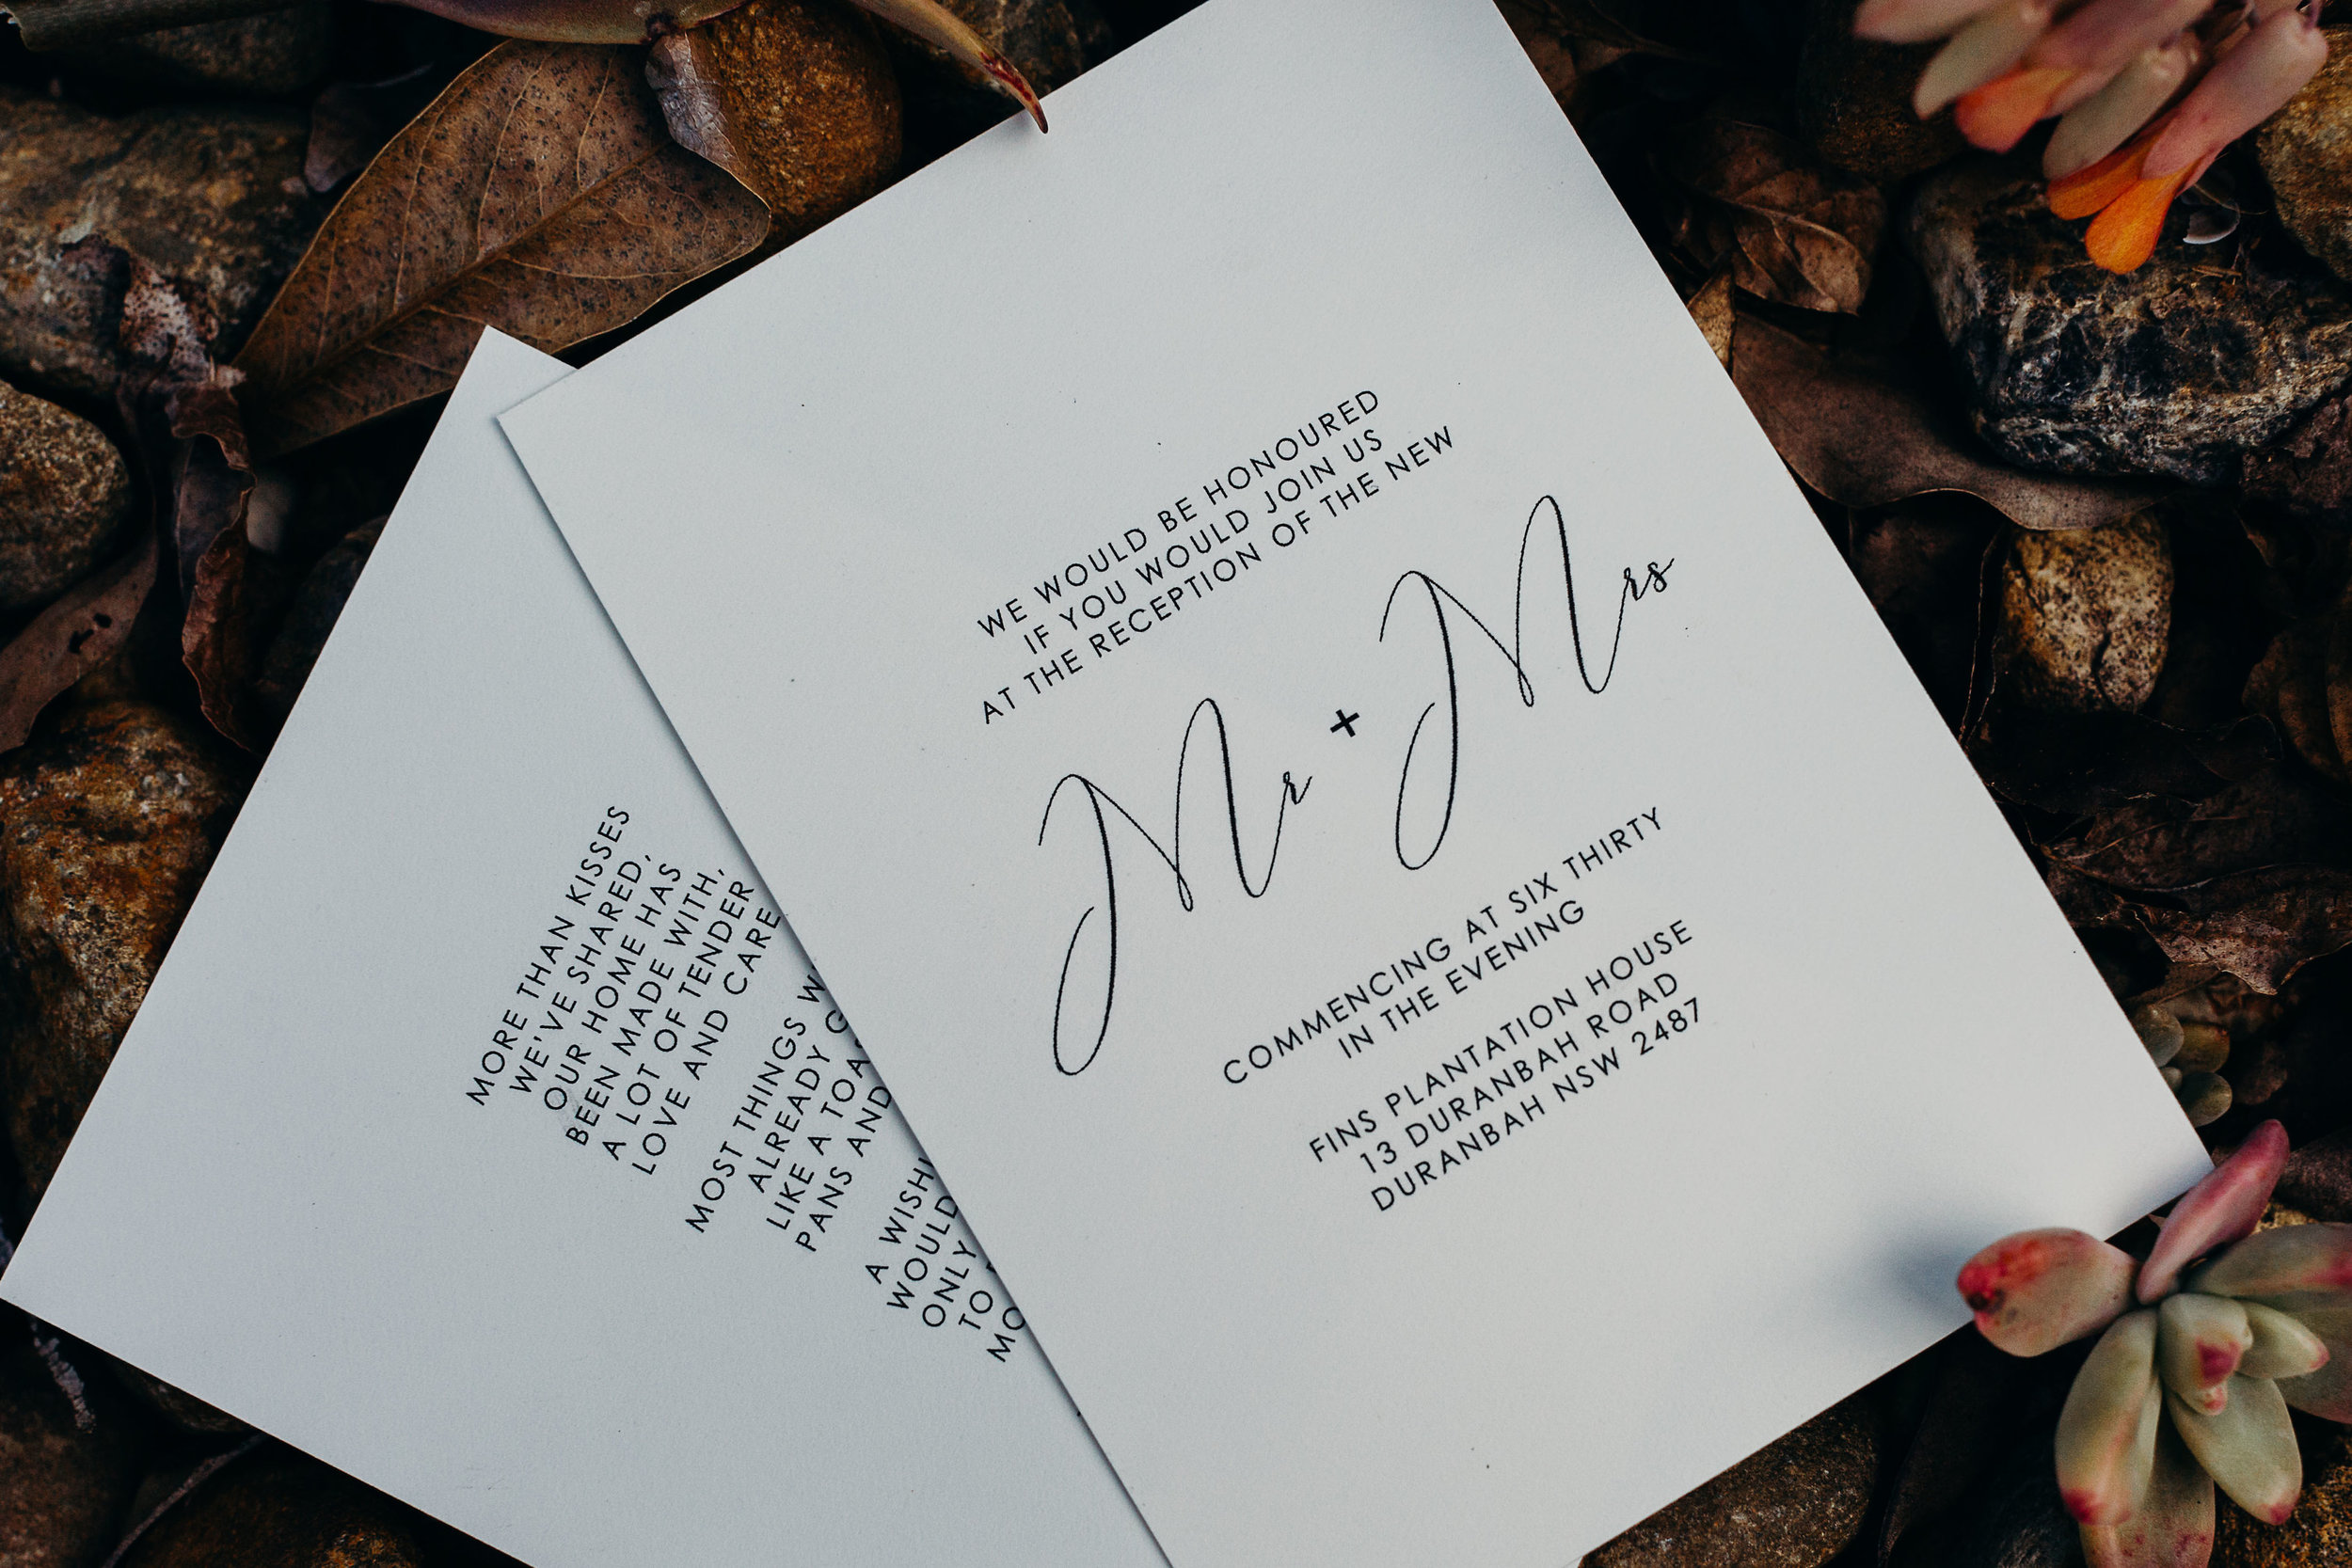 WE WOULD BE HONOURED
IF YOU WOULD JOIN US
AT THE RECEPTION OF THE NEW
Mr + Mrs
COMMENCING AT SIX THIRTY
IN THE EVENING
FINS PLANTATION HOUSE
13 DURANBAH ROAD
DURANBAH NSW 2487
MORE THAN KISSES
WE'VE SHARED,
OUR HOME HAS
BEEN MADE WITH,
A LOT OF TENDER
LOVE AND CARE
MOST THINGS
ALREADY
LIKE A
PANS AND
A
WOULD
ONLY
TO